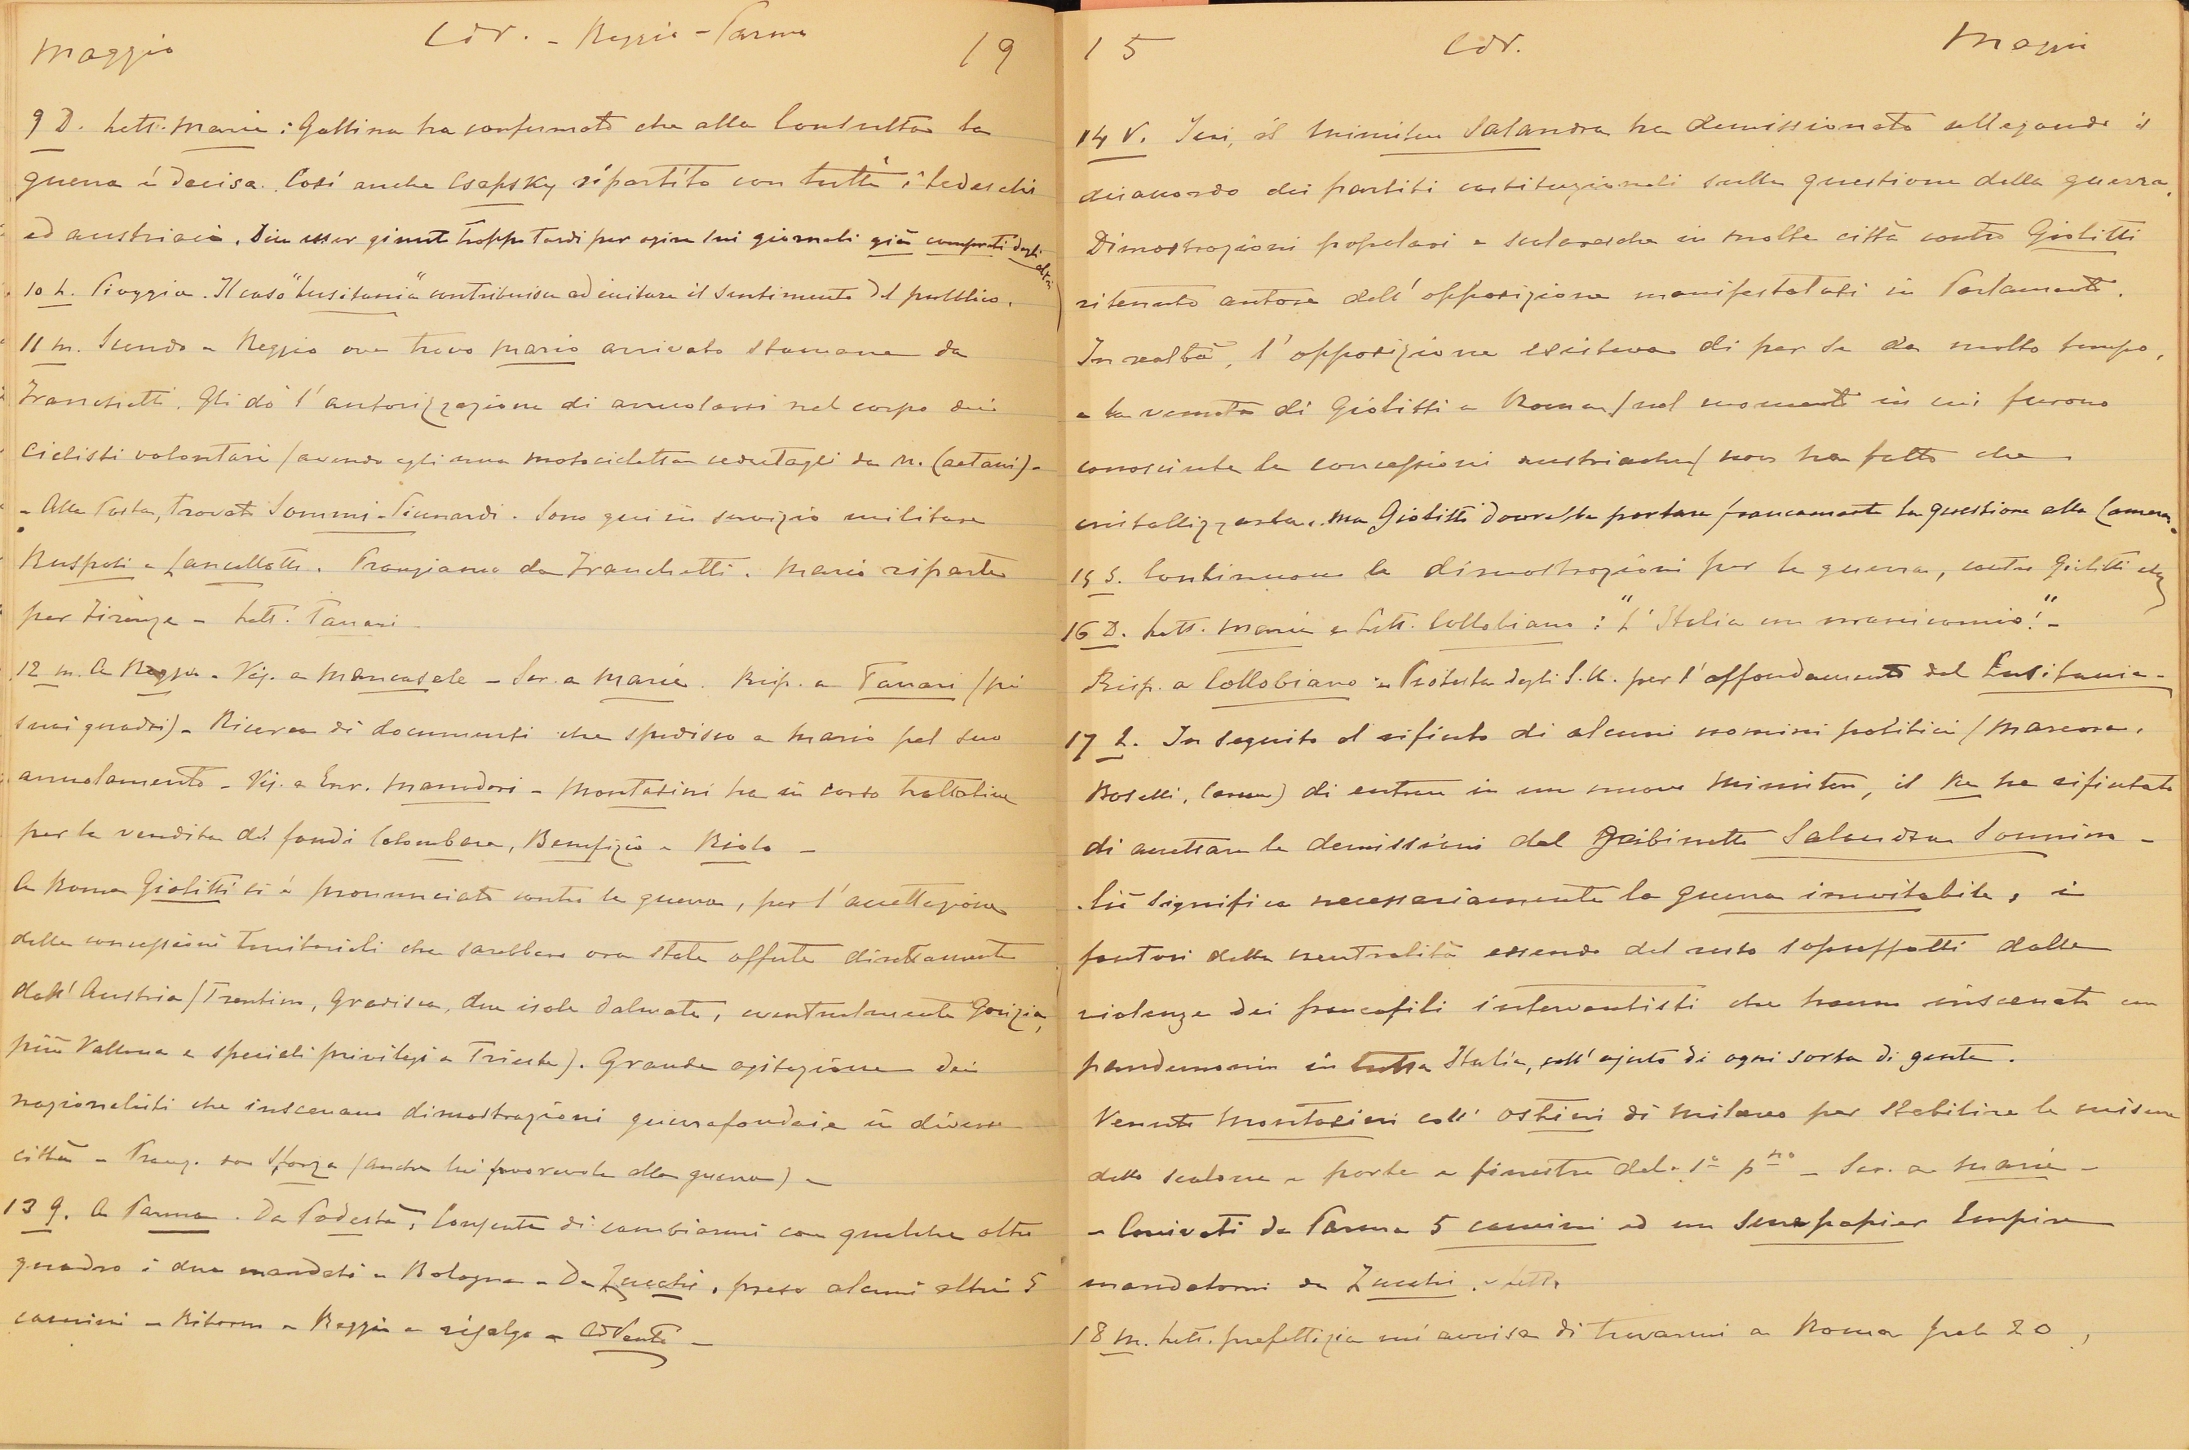 Maggio CdV. - Reggio - Parma 19
9 D. Lett. Marie: Gallina ha confermato che alla Consulta la
guerra è decisa. Così anche Csapsky ripartito con tutti i tedeschi
ed austriaci. Dice esser giunto troppo tardi per agire sui giornali già comprati dagli altri
10 L. Pioggia. Il caso "Lusitania" contribuisce ad irritare il sentimento del pubblico.
11 M. Scendo a Reggio ove trovo Mario arrivato stamane da
Franchetti. Gli do l'autorizzazione di arruolarsi nel corpo dei
ciclisti volontari (avendo egli una motocicletta cedutagli da N. Caetani) -
- Alla Posta, trovati Sommi-Picenardi. Sono qui in servizio militare
Ruspoli e Lancellotti. Pranziamo da Franchetti. Mario riparte
per Firenze - Lett. Tanari -
12 M. A Reggio - Vis. a Mancasale - Scr. a Marie. Risp. a Tanari (pei
suoi quadri) - Ricerca di documenti che spedisco a Mario pel suo
arruolamento - Vis. a Enr. Manodori - Montasini ha in corso trattative
per la vendita dei fondi Colombara, Benefizio e Riolo -
A Roma Giolitti si è pronunciato contro la guerra, per l'accettazione
delle concessioni territoriali che sarebbero ora state offerte direttamente
dall'Austria (Trentino, Gradisca, due isole Dalmate, eventualmente Gorizia,
più Vallona e speciali privilegi a Trieste). Grande agitazione dei
nazionalisti che inscenano dimostrazioni guerrafondaie in diverse
città - Pranz. con Sforza (anche lui favorevole alla guerra) -
13 G. A Parma. Da Podestà, consente di cambiarmi con qualche altro
quadro i due mandati a Bologna - Da Zucchi, preso alcuni altri 5
camini - Ritorno a Reggio e risalgo a CdVento -
15 CdV. Maggio
14 V. Ieri, il Ministero Salandra ha demissionato allegando il
disaccordo dei partiti costituzionali sulla questione della guerra.
Dimostrazioni popolari e scolaresche in molte città contro Giolitti
ritenuto autore dell'opposizione manifestatasi in Parlamento.
In realtà, l'opposizione esisteva di per se da molto tempo,
e la venuta di Giolitti a Roma (nel momento in cui furono
conosciute le concessioni austriache) non ha fatto che
cristallizzarla. Ma Giolitti dovrebbe portare francamente la questione alla Camera.
15 S. Continuano le dimostrazioni per la guerra, contro Giolitti etc
16 D. Lett. Marie e Lett. Collobiano: "L'Italia un manicomio!" -
Risp. a Collobiano - Protesta degli S.U. per l'affondamento del Lusitania -
17 L. In seguito al rifiuto di alcuni uomini politici (Marcora,
Boselli, Carcano) di entrare in un nuovo Ministero, il Re ha rifiutato
di accettare le demissioni del Gabinetto Salandra Sonnino -
Ciò significa necessariamente la guerra inevitabile, i
fautori della neutralità essendo del resto sopraffatti dalle
violenze dei francofili interventisti che hanno inscenato un
pandemonio in tutta Italia, coll'ajuto di ogni sorta di gente.
Venuto Montasini coll' Ostini di Milano per stabilire le misure
dello scalone e porte e finestre del 1º pno - Scr. a Marie -
- Arrivati da Parma 5 camini ed un Serre papier Empire
mandatomi da Zucchi.
18 M. Lett. prefettizia mi avvisa di trovarmi a Roma pel 20,